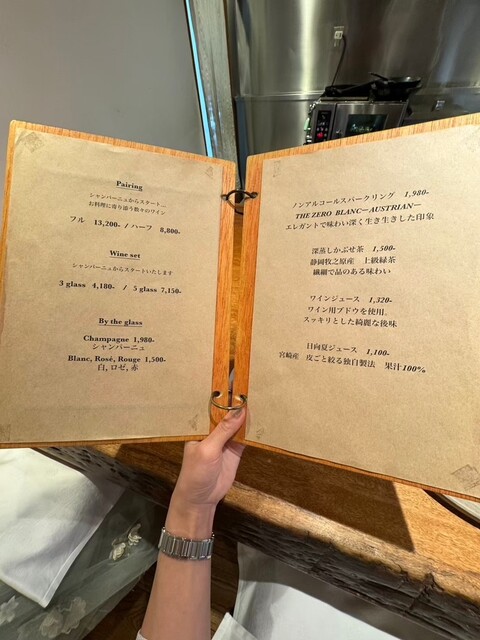 Pairing
シャンパーニュからスタート...
お料理に寄り添う数々のワイン
フル 13,200- / ハーフ 8,800-
Wine set
シャンパーニュからスタートいたします
3 glass 4,180- / 5 glass 7,150-
By the glass
Champagne 1,980-
シャンパーニュ
Blanc, Rosé, Rouge 1,500-
白, ロゼ, 赤
ノンアルコールスパークリング 1,980-
THE ZERO BLANC—AUSTRIAN—
エレガントで味わい深く生き生きした印象
深蒸しかぶせ茶 1,500-
静岡牧之原産 上級緑茶
繊細で品のある味わい
ワインジュース 1,320-
ワイン用ブドウを使用
スッキリとした綺麗な後味
日向夏ジュース 1,100-
宮崎産 皮ごと絞る独自製法 果汁100%